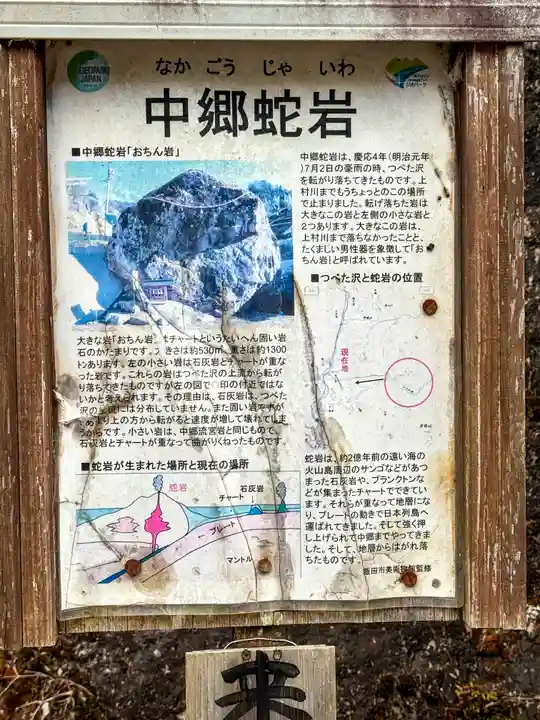 GEOPARK
JAPAN
なか ごう じゃ いわ
中郷蛇岩
■中郷蛇岩「おちん岩」
大きな岩「おちん岩」はチャートというたいへん固い岩
石のかたまりです。大きさは約530㎥、重さは約1300
トンあります。左の小さい岩は石灰岩とチャートが重な
った岩です。これらの岩はつべた沢の上流から転が
り落ちてきたものですが左の図で○印の付近ではな
いかと考えられます。その理由は、石灰岩は、つべた
沢の には分布していません。また固い岩ですが
上の方から転がると速度が増して壊れてしま
うからです。小さい岩は、中郷流宮岩と同じもので、
石灰岩とチャートが重なって曲がりくねったものです。
■蛇岩が生まれた場所と現在の場所
蛇岩
石灰岩
チャート
プレート
マントル
中郷蛇岩は、慶応4年(明治元年
)7月2日の豪雨の時、つべた沢
を転がり落ちてきたものです。上
村川までもうちょっとのこの場所
で止まりました。転げ落ちた岩は
大きなこの岩と左側の小さな岩と
2つあります。大きなこの岩は、
上村川まで落ちなかったことと、
たくましい男性器を象徴して「お
ちん岩」と呼ばれています。
■つべた沢と蛇岩の位置
現在地
蛇岩は、約2億年前の遠い海の
火山島周辺のサンゴなどがあつ
まった石灰岩や、プランクトンな
どが集まったチャートでできてい
ます。それらが重なって地層にな
り、プレートの動きで日本列島へ
運ばれてきました。そして強く押
し上げられて中郷までやってきま
した。そして、地層からはがれ落
ちたものです。
飯田市美術博物館監修
来